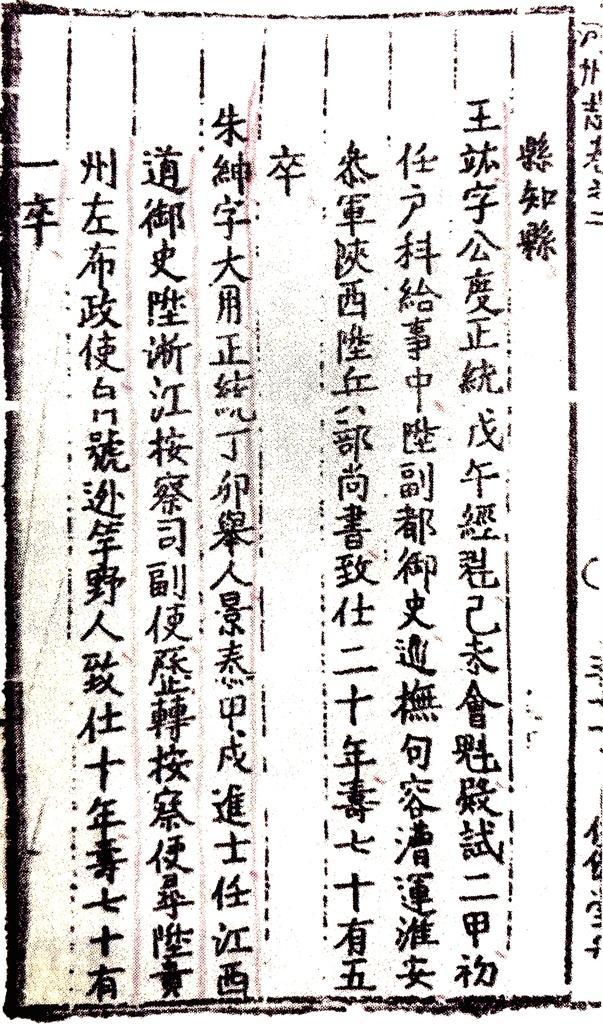 縣知縣
王竑字公度正統戊午經魁己未會魁殿試二甲初
任戶科給事中陞副都御史巡撫句容漕運淮安
叅軍陝西陞兵部尚書致仕二十年壽七十有五
卒
朱紳字大用正統丁卯舉人景泰甲戍進士任江西
道御史陞浙江按察司副使歷轉按察使尋陞貴
州左布政使自號迯竿野人致仕十年壽七十有
一卒